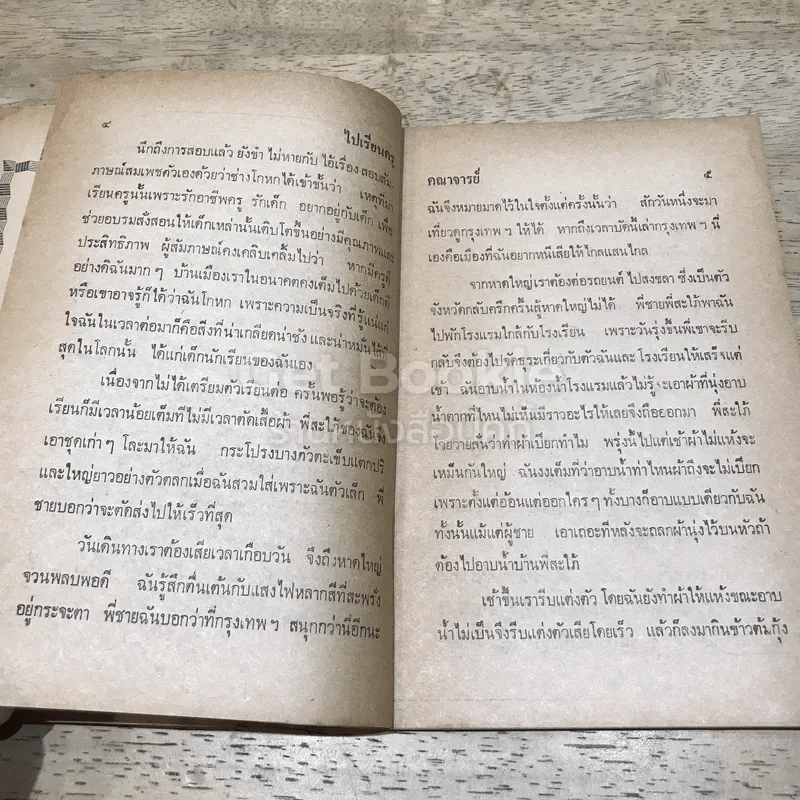 ๔
ไปเรียนครู
นึกถึงการสอบแล้ว ยังขำ ไม่หายกับ ไอ้เรื่อง สอบสัมภา
ภาษณ์สมเพชตัวเองด้วยว่าช่างโกหกได้เข้าชั้นว่า เหตุที่มา
เรียนครูนั้นเพราะรักอาชีพครู รักเด็ก อยากอยู่กับเด็ก เพื่อ
ช่วยอบรมสั่งสอนให้เด็กเหล่านั้นเติบโตขึ้นอย่างมีคุณภาพและ
ประสิทธิภาพ ผู้สัมภาษณ์คงเคลิบเคลิ้มไปว่า หากมีครูดี
อย่างดิฉันมาก ๆ บ้านเมืองเราในอนาคตคงเต็มไปด้วยเด็กดี
หรือเขาอาจรู้ก็ได้ว่าฉันโกหก เพราะความเป็นจริงที่รู้แน่แก่
ใจฉันในเวลาต่อมาก็คือสิ่งที่น่าเกลียดน่าชัง และน่าหมั่นไส้ที่
สุดในโลกนั้น ได้แก่เด็กนักเรียนของฉันเอง
เนื่องจากไม่ได้เตรียมตัวเรียนต่อ ครั้นพอรู้ว่าจะต้อง
เรียนก็มีเวลาน้อยเต็มทีไม่มีเวลาตัดเสื้อผ้า พี่สะใภ้ของฉันจึง
เอาชุดเก่า ๆ โละมาให้ฉัน กระโปรงบางตัวตะเข็บแตกปริ
และใหญ่ยาวอย่างตัวตลกเมื่อฉันสวมใส่เพราะฉันตัวเล็ก พี่
ชายบอกว่าจะตัดส่งไปให้เร็วที่สุด
วันเดินทางเราต้องเสียเวลาเกือบวัน จึงถึงหาดใหญ่
จวนพลบพอดี ฉันรู้สึกตื่นเต้นกับแสงไฟหลากสีที่สะพรั่ง
อยู่กระจะตา พี่ชายฉันบอกว่าที่กรุงเทพ ฯ สนุกกว่านี่อีกนะ
คณาจารย์
๕
ฉันจึงหมายมาดไว้ในใจตั้งแต่ครั้งนั้นว่า สักวันหนึ่งจะมา
เที่ยวดูกรุงเทพ ฯ ให้ได้ หากถึงเวลาบัดนี้เล่ากรุงเทพ ฯ นี่
เองคือเมืองที่ฉันอยากหนีเสียให้ไกลแสนไกล
จากหาดใหญ่เราต้องต่อรถยนต์ ไปสงขลา ซึ่งเป็นตัว
จังหวัดกลับครึกครื้นสู้หาดใหญ่ไม่ได้ พี่ชายพี่สะใภ้พาฉัน
ไปพักโรงแรมใกล้กับโรงเรียน เพราะวันรุ่งขึ้นพี่เขาจะรีบ
กลับจึงต้องไปจัดธุระเกี่ยวกับตัวฉันและ โรงเรียนให้เสร็จแต่
เช้า ฉันอาบน้ำในห้องน้ำโรงแรมแล้วไม่รู้จะเอาผ้าที่นุ่งอาบ
น้ำตากที่ไหนไม่เห็นมีราวอะไรให้เลยจึงถือออกมา พี่สะใภ้
โวยวายลั่นว่าทำผ้าเปียกทำไม พรุ่งนี้ไปแต่เช้าผ้าไม่แห้งจะ
เหม็นกันใหญ่ ฉันงงเต็มที่ว่าอาบน้ำท่าไหนผ้าถึงจะไม่เปียก
เพราะตั้งแต่อ้อนแต่ออกใคร ๆ ทั้งบางก็อาบแบบเดียวกับฉัน
ทั้งนั้นแม้แต่ผู้ชาย เอาเถอะทีหลังจะถลกผ้านุ่งไว้บนหัวถ้า
ต้องไปอาบน้ำบ้านพี่สะใภ้
เช้าขึ้นเรารีบแต่งตัว โดยฉันยังทำผ้าให้แห้งขณะอาบ
น้ำไม่เป็นจึงรีบแต่งตัวเสียโดยเร็ว แล้วก็ลงมากินข้าวต้มกุ้ง